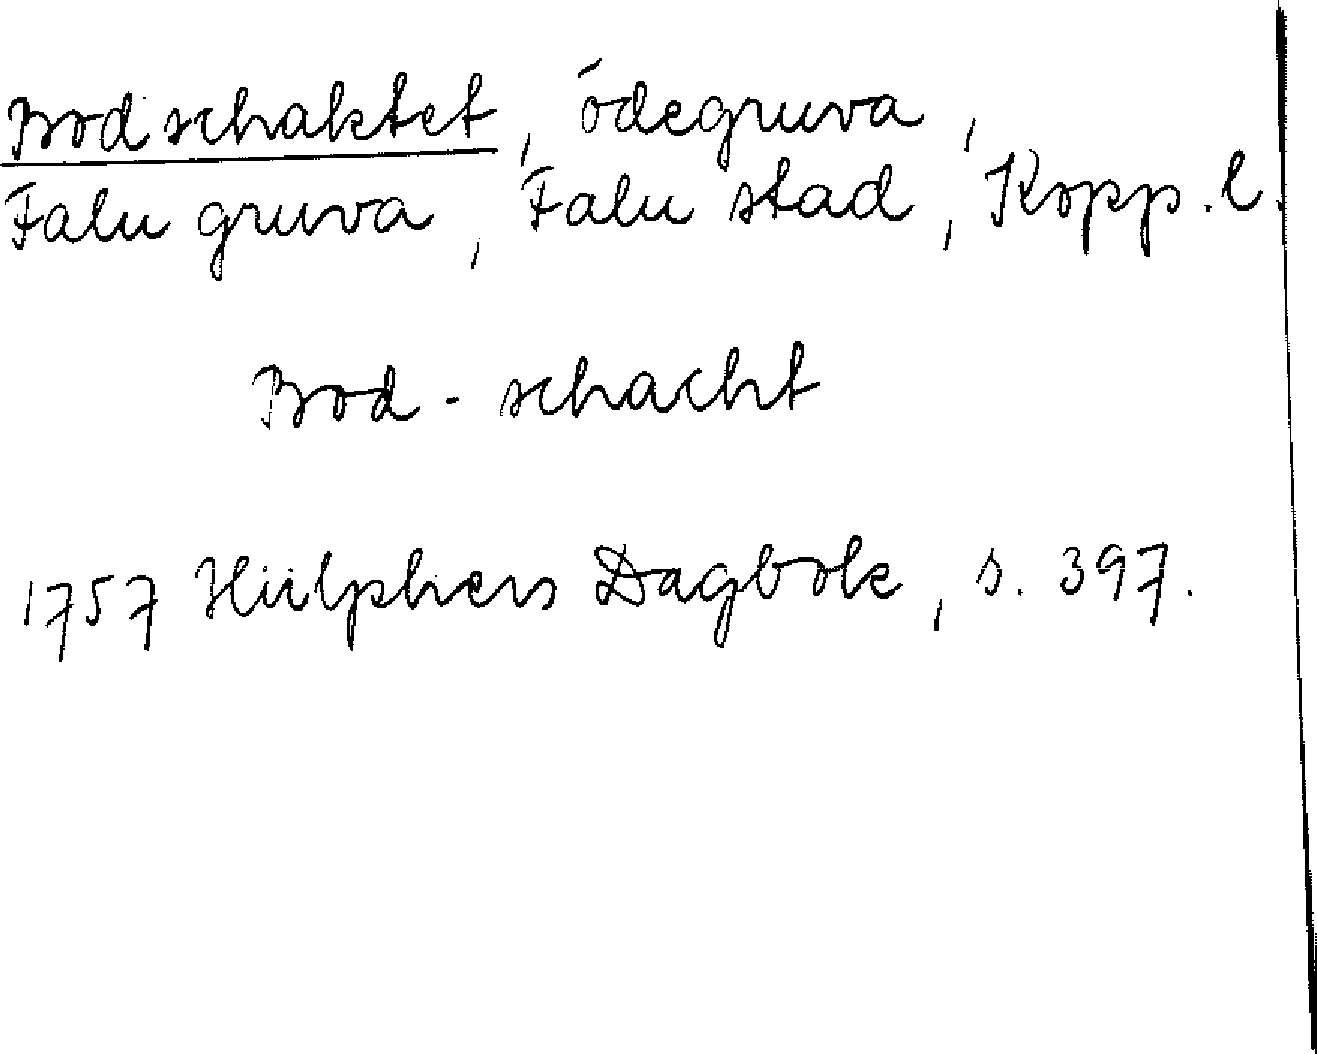 Bodschaktet, ödegruva,
Falu gruva, Falu stad, Kopp. l.
Bod - schacht
1757 Hülphers Dagbok, s. 397.